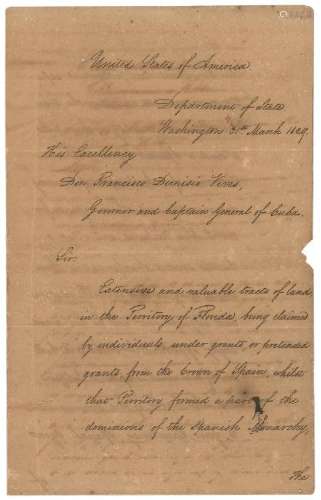 United States of America
Department of State
Washington 31st March 1829.
His Excellency
Don Francisco Dionisio Vives,
Governor and Captain General of Cuba.
Sir:
Extensive and valuable tracts of land
in the Territory of Florida, being claimed
by individuals, under grants or pretended
grants from the Crown of Spain, whilst
that Territory formed a part of the
dominions of the Spanish Monarchy,
The